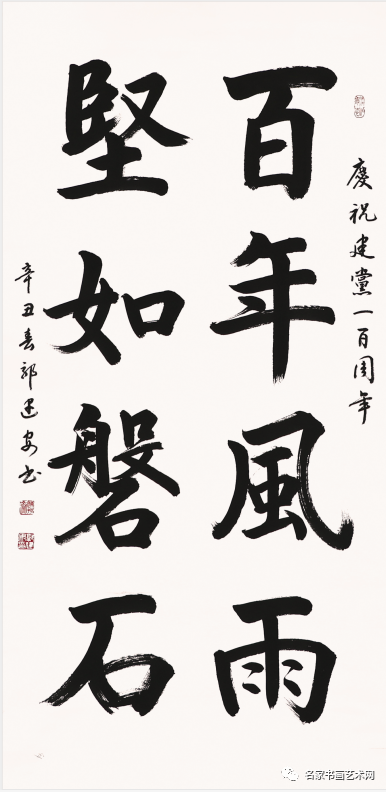 慶祝建黨一百周年
百年風雨
堅如磐石
辛丑春郭安书
名家书画艺术网